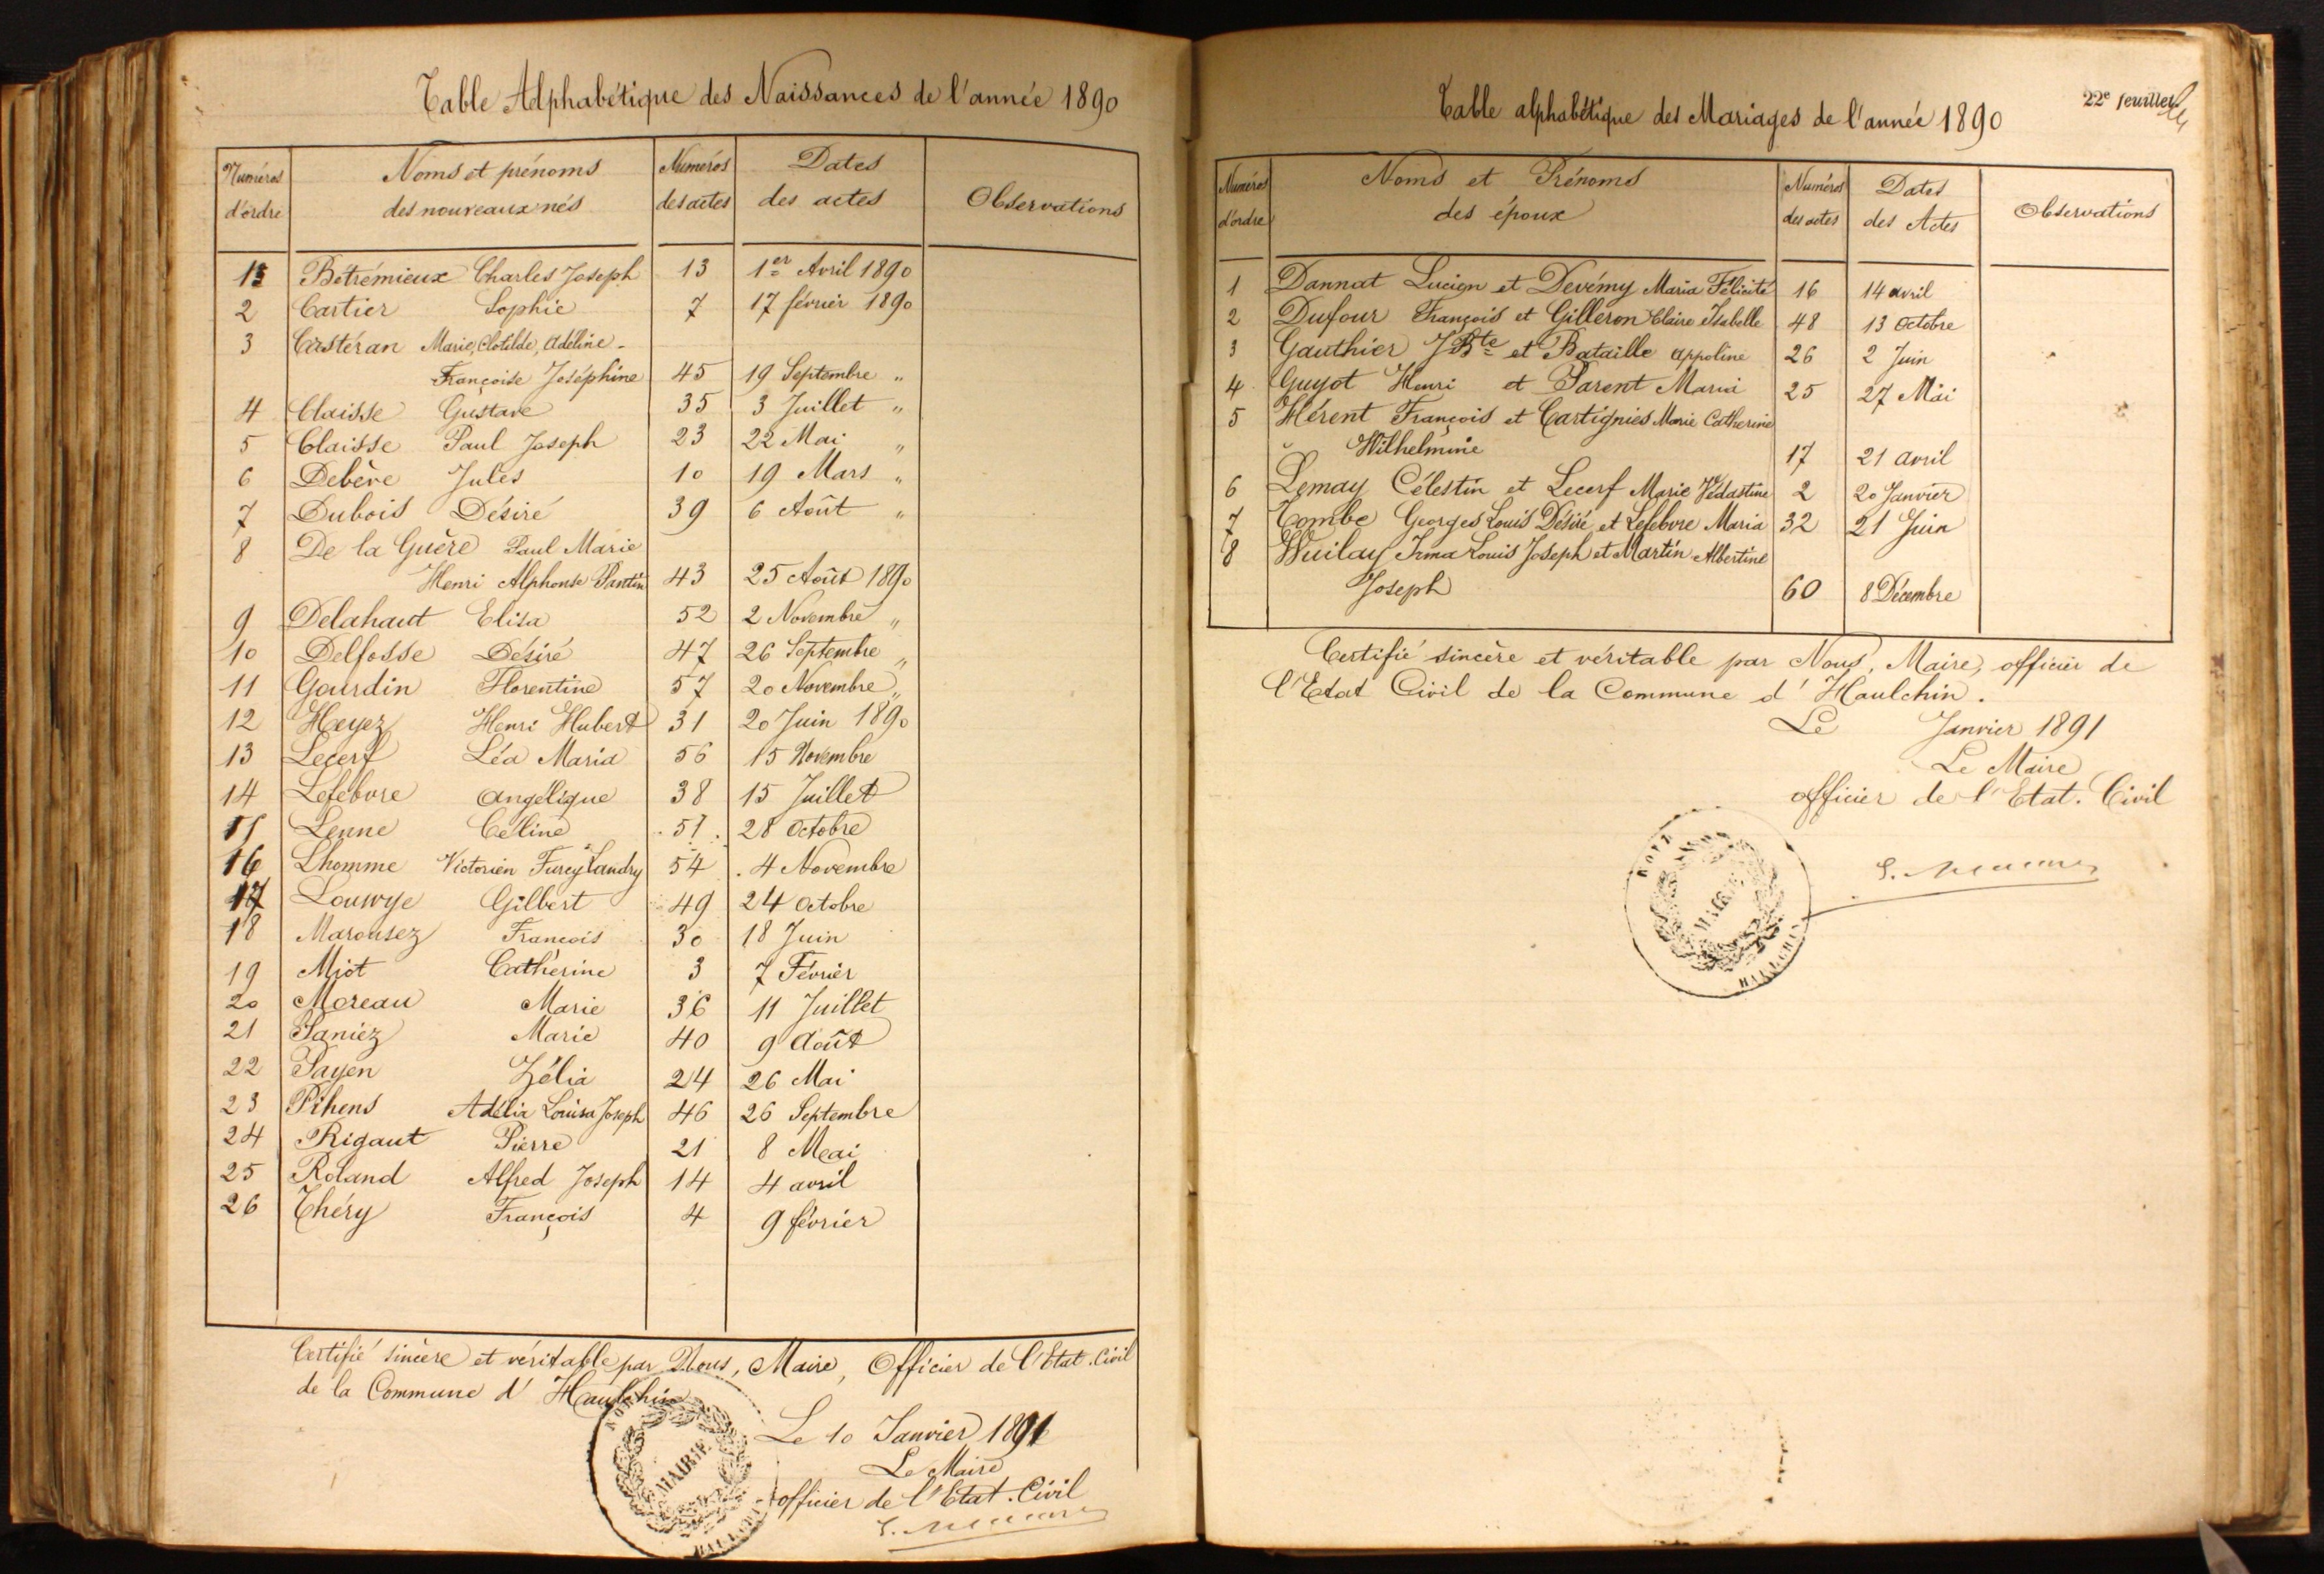 Table Alphabétique des Naissances de l'année 1890
Numéros d'ordre Noms et prénoms des nouveaux nés Numéros des actes Dates des actes Observations
1 Betrémieux Charles Joseph 13 1er Avril 1890
2 Cartier Sophie 7 17 février 1890
3 Castéran Marie, Clotilde, Adéline-
Françoise Joséphine 45 19 Septembre "
4 Claisse Gustave 35 3 Juillet "
5 Claisse Paul Joseph 23 22 Mai "
6 Debève Jules 10 19 Mars "
7 Dubois Désiré 39 6 Août "
8 De la Guère Paul Marie
Henri Alphonse Pantin 43 25 Août 1890
9 Delahaut Elisa 52 2 Novembre "
10 Delfosse Désiré 47 26 Septembre "
11 Gourdin Florentine 57 20 Novembre "
12 Heyez Henri Hubert 31 20 Juin 1890
13 Lecerf Léa Maria 56 15 Novembre
14 Lefebvre Angélique 38 15 Juillet
15 Lenne Céline 51 28 Octobre
16 Lhomme Victorien Furcy Landry 54 4 Novembre
17 Louwye Gilbert 49 24 Octobre
18 Marousez François 30 18 Juin
19 Miot Cathérine 3 7 Février
20 Moreau Marie 36 11 Juillet
21 Paniez Marie 40 9 Août
22 Payen Zélia 24 26 Mai
23 Pihens Adélia Louisa Joseph 46 26 Septembre
24 Rigaut Pierre 21 8 Mai
25 Roland Alfred Joseph 14 4 avril
26 Théry François 4 9 février
Certifié sincère et véritable par Nous, Maire, Officier de l'Etat. Civil
de la Commune d'Haulchin
Le 10 Janvier 1891
Le Maire
officier de l'Etat. Civil
MAIRIE
22e feuillet
Table alphabétique des Mariages de l'année 1890
Numéros d'ordre Noms et Prénoms des époux Numéros des actes Dates des Actes Observations
1 Dannat Lucien et Devémy Maria Félicité 16 14 avril
2 Dufour François et Gilleron Claire Isabelle 48 13 Octobre
3 Gauthier J Bte et Bataille Appoline 26 2 Juin
4 Guyot Henri et Parent Maria 25 27 Mai
5 Hérent François et Cartignies Marie Catherine
Wilhelmine 17 21 avril
6 Lemay Célestin et Lecerf Marie Védastine 2 20 Janvier
7 Tombe Georges Louis Désiré et Lefebvre Maria 32 21 Juin
8 Wuilay Irma Louis Joseph et Martin Albertine
Joseph 60 8 Décembre
Certifié sincère et véritable par Nous, Maire, officier de
l'Etat Civil de la Commune d'Haulchin.
Le Janvier 1891
Le Maire
officier de l'Etat. Civil
MAIRIE
HAULCHIN